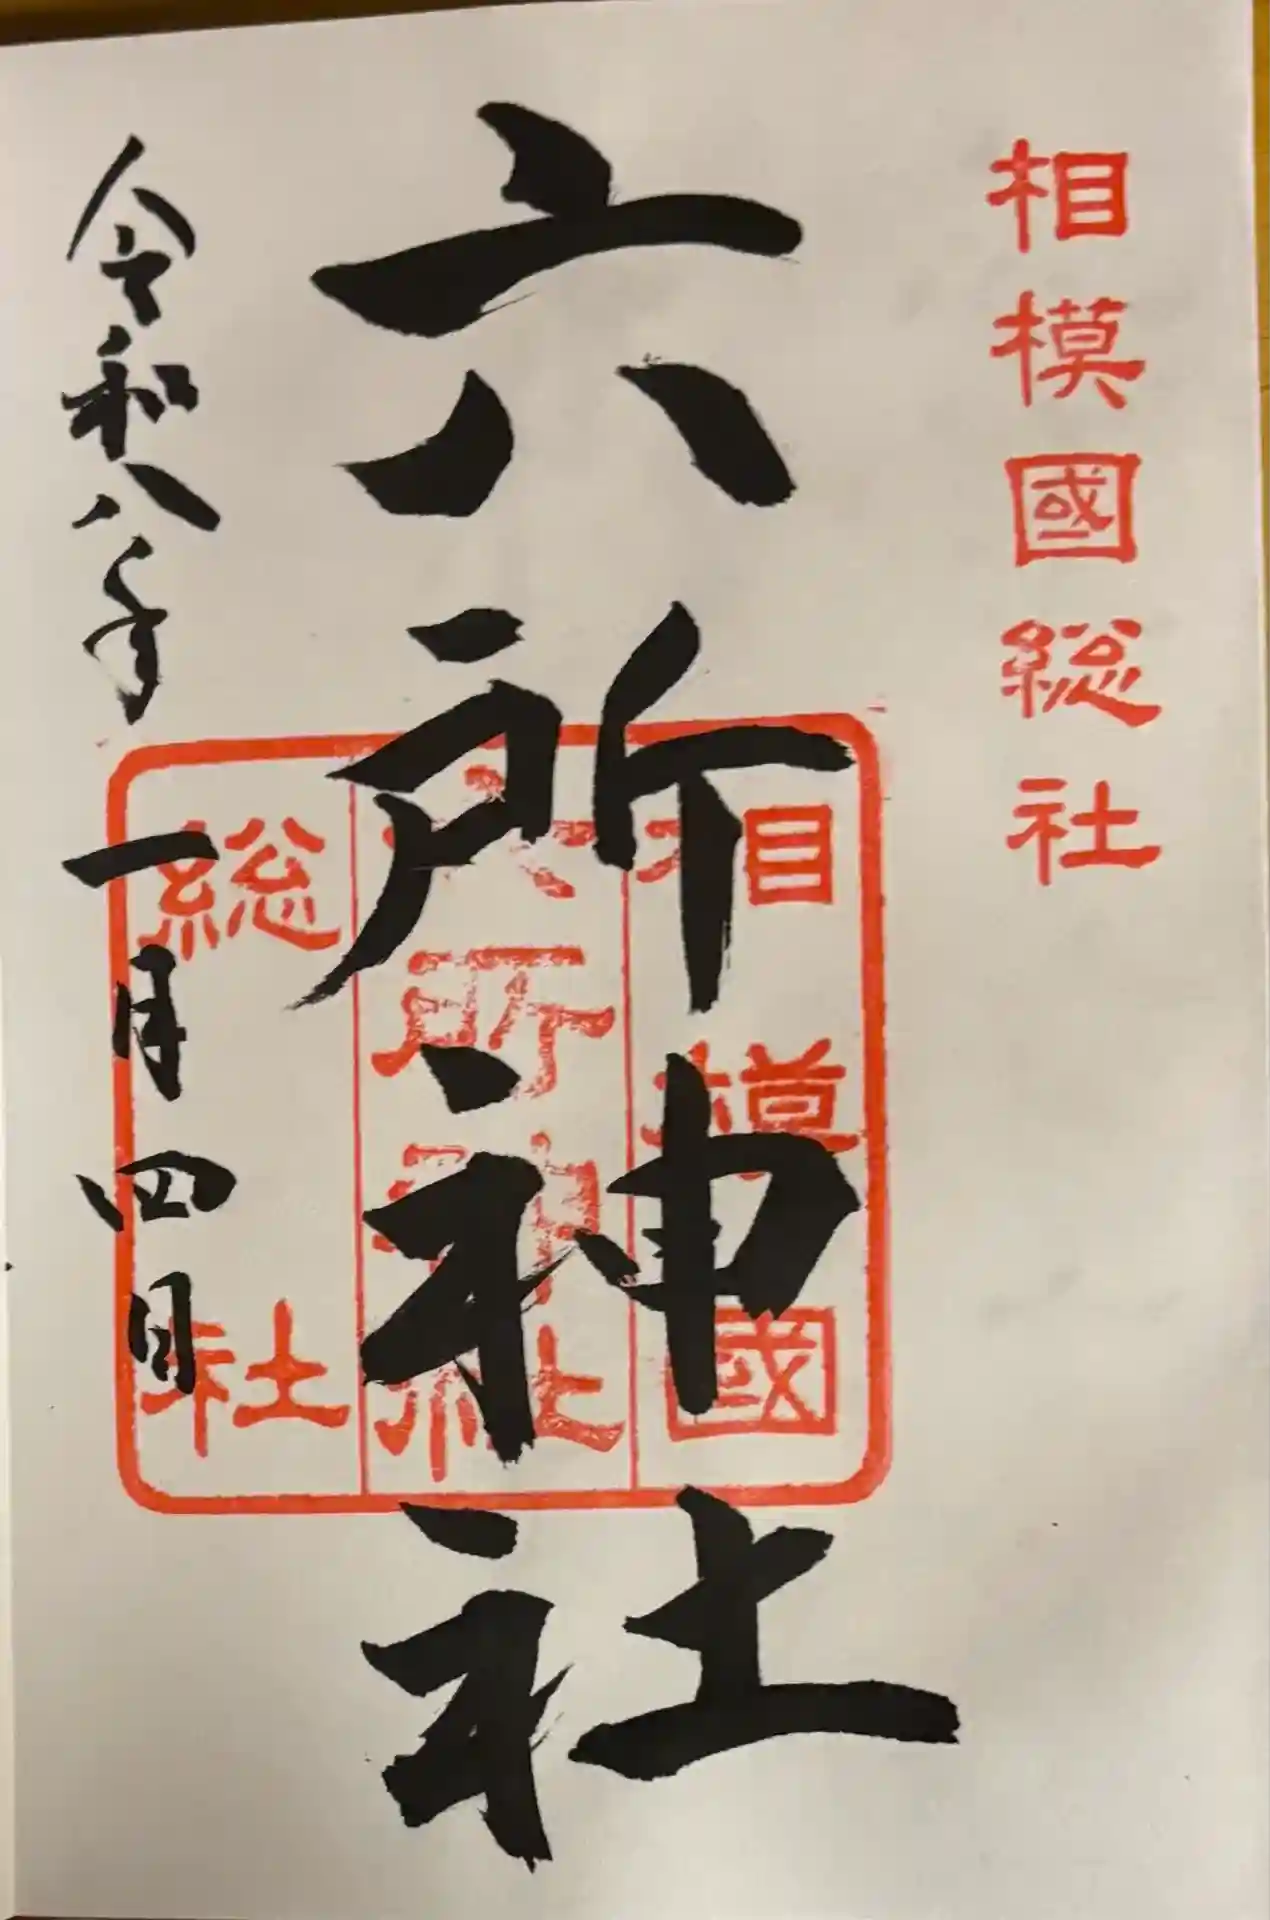 相模國総社
六所神社
相模國
六所神社
総社
令和八年一月四日